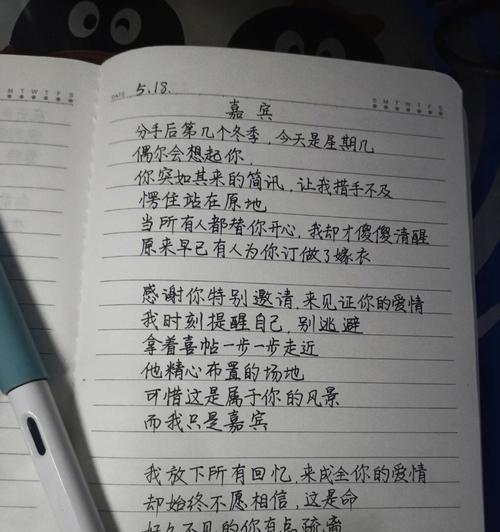 M T W T F S
DATE 5.18.
S M T W T F S
嘉宾
分手后第几个冬季，今天是星期几
偶尔会想起你，
你突如其来的简讯，让我措手不及
愣住站在原地
当所有人都替你开心，我却才傻傻清醒
原来早已有人为你订做了嫁衣
感谢你特别邀请，来见证你的爱情
我时刻提醒自己，别逃避
拿着喜帖一步一步走近
他精心布置的场地
可惜这是属于你的风景
而我只是嘉宾
我放下所有回忆，来成全你的爱情
却始终不愿相信，这是命
好久不见的你有点疏离